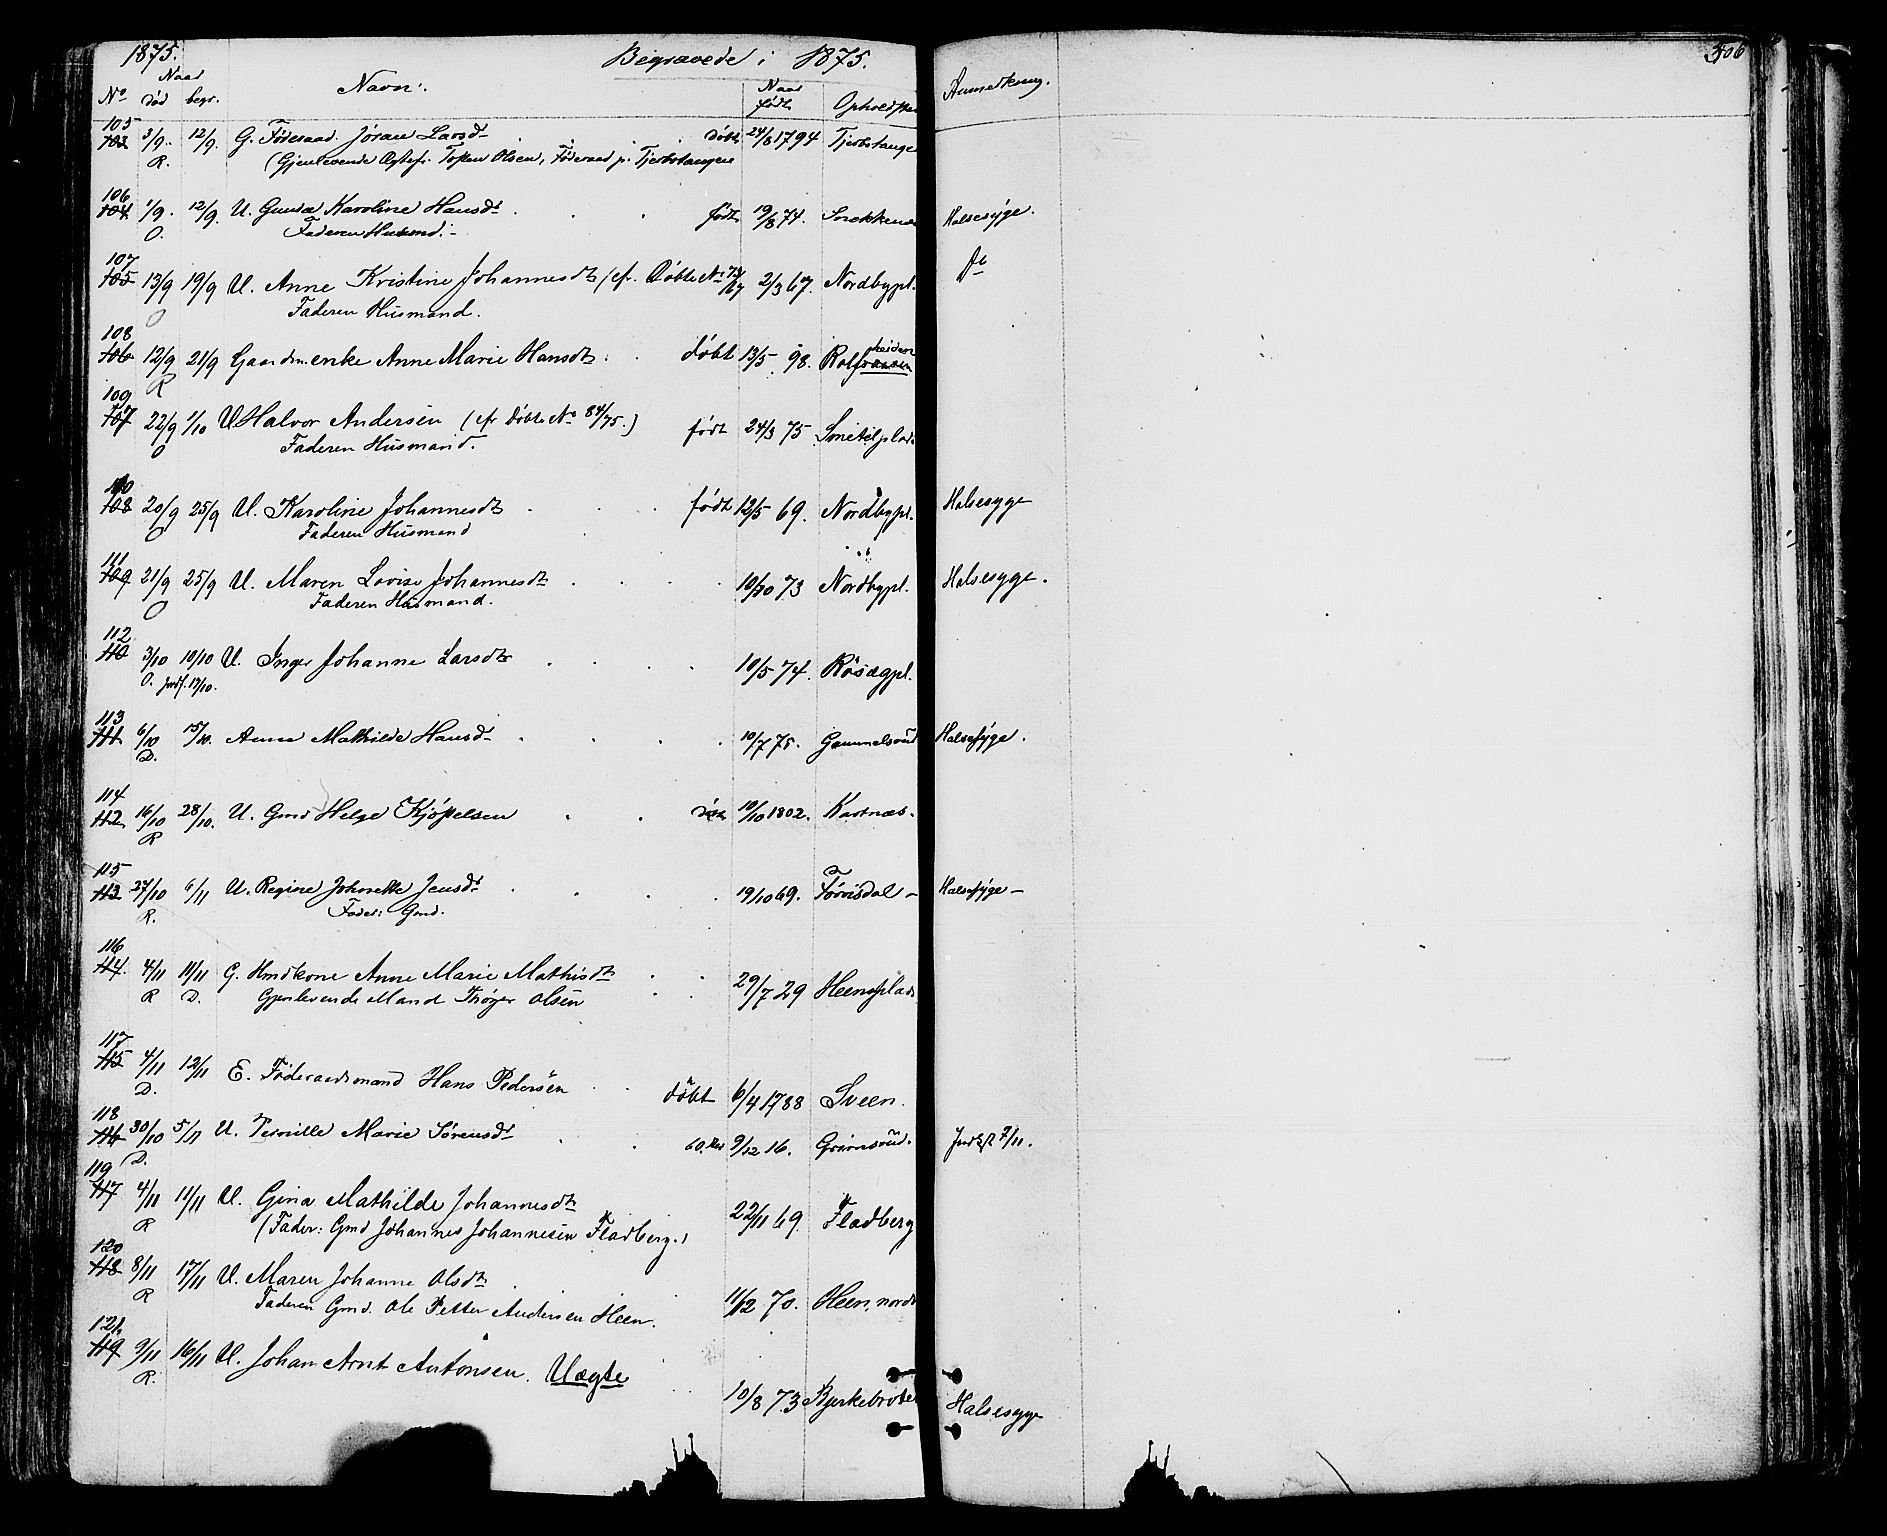 1875. Begravede i 1875. 506
No Naar død begr. Navn: Naar født Opholdssted Anmerkning.
105 103 3/9 12/9 G. Føderaad. Jøran Larsdr døbt 24/8 1794 Tjerbstange
R. (Gjenlevende Ægtef: Toften Olsen, Føderaad p. Tjerbstangen
106 104 1/9. 12/9. U. Gunda Karoline Hansdr født 19/8 74. Snekkenes Halsesyge.
O. Faderen Husmd.
107 105 13/9 19/9 U. Anne Kristine Johannesdtr (cfr. Døbte No 73/67 2/3 67. Nordbypl. Do
O Faderen Husmand.
108 106 12/9 21/9 Gaardm.enke Anne Marie Hansdtr. døbt 13/5 98. Rolfs
R
109 107 22/9 1/10 U Halvor Andersen (cfr Døbte No 84/75.) født 24/3 75 Smetilplads
O Faderen Husmand.
110 108 20/9 25/9 U. Karoline Johannesdtr født 12/5 69. Nordbypl. Halsesyge
O Faderen Husmand
111 109 21/9 25/9 U. Maren Lovise Johannesdtr 10/10 73 Nordbypl. Halsesyge.
O Faderen Husmand.
112 110 3/10 10/10 U. Inger Johanne Larsdtr 10/5 74. Rösægpl.
O. Jndf. 17/10.
113 111 6/10 15/10. Anna Mathilde Hansdr 10/7 75. Gammelsrud Halsesyge.
D.
114 112 16/10 28/10. U. Gmd Helge Kjøpelsen døbt 10/10 1802. Kastnæs.
R
115 113 27/10 6/11 U. Regine Johnette Jensdr 19/10 69. Tørvisdal Halsesyge
R. Fader: Gmd.
116 114. 4/11 11/11 G. Hmdkone Anne Marie Mathisdtr 29/7 29 Heensplads
R D. Gjenlevende Mand Trøger Olsen
117 115 4/11 12/11 E. Föderaadsmand Hans Pedersen döbt 6/4 1788 Sveen.
D.
118 116 30/10 5/11 U. Pernille Marie Sørensdr 9/12 16. Grimsrud. Jndkft 7/11.
D.
119 117 4/11 11/11 U. Gina Mathilde Johannesdtr 22/11 69. Fladberg
R (Fader: Gmd Johannes Johannesen Fladberg.)
120 118 8/11 17/11 U. Maren Johanne Olsdtr 11/12 70. Heen, nordr
R Faderen Gmd. Ole Petter Andersen Heen.
121 119 9/11 16/11 U. Johan Arnt Antonsen. Uægte 10/8 73 Bjerkebraten Halsesyge
R.